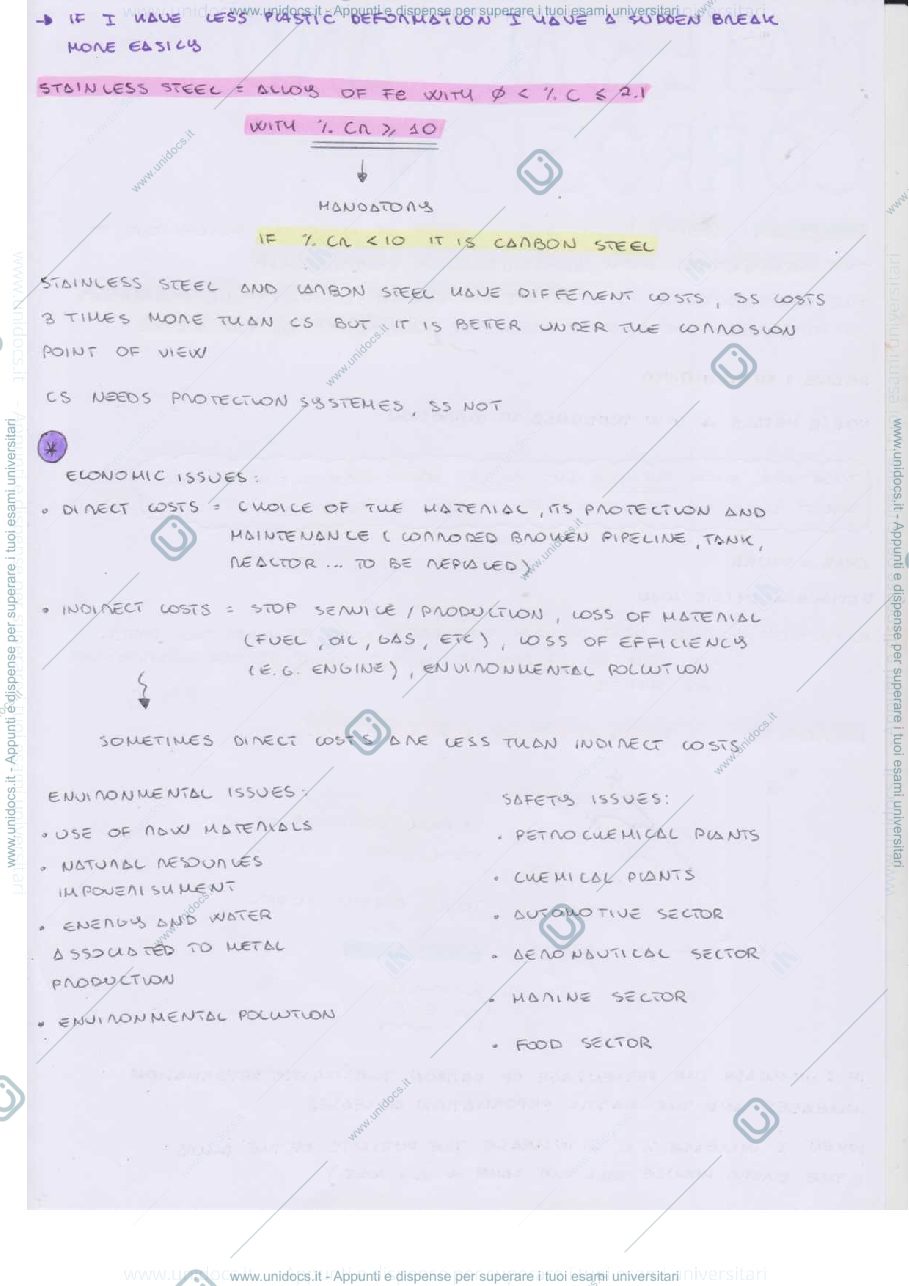 www.unidocs.it - Appunti e dispense per superare i tuoi esami universitari
→ IF I HAVE LESS PLASTIC DEFORMATION I HAVE A SUDDEN BREAK
MORE EASILY
STAINLESS STEEL = ALLOY OF Fe WITH Ø < % C ≤ 2.1
WITH % Cr ≥ 10
MANDATORY
IF % Cr < 10 IT IS CARBON STEEL
STAINLESS STEEL AND CARBON STEEL HAVE DIFFERENT COSTS, SS COSTS
3 TIMES MORE THAN CS BUT IT IS BETTER UNDER THE CORROSION
POINT OF VIEW
CS NEEDS PROTECTION SYSTEMES, SS NOT
*
ECONOMIC ISSUES:
• DIRECT COSTS = CHOICE OF THE MATERIAL, ITS PROTECTION AND
MAINTENANCE (CORRODED BROKEN PIPELINE, TANK,
REACTOR ... TO BE REPLACED)
• INDIRECT COSTS = STOP SERVICE / PRODUCTION, LOSS OF MATERIAL
(FUEL, OIL, GAS, ETC), LOSS OF EFFICIENCY
(E.G. ENGINE), ENVIRONMENTAL POLLUTION
SOMETIMES DIRECT COSTS ARE LESS THAN INDIRECT COSTS
ENVIRONMENTAL ISSUES:
• USE OF RAW MATERIALS
• NATURAL RESOURCES
IMPOVERISHMENT
• ENERGY AND WATER
ASSOCIATED TO METAL
PRODUCTION
• ENVIRONMENTAL POLLUTION
SAFETY ISSUES:
• PETROCHEMICAL PLANTS
• CHEMICAL PLANTS
• AUTOMOTIVE SECTOR
• AERONAUTICAL SECTOR
• MARINE SECTOR
• FOOD SECTOR
www.unidocs.it - Appunti e dispense per superare i tuoi esami universitari
www.unidocs.it - Appunti e dispense per superare i tuoi esami universitari
www.unidocs.it - Appunti e dispense per superare i tuoi esami universitari
www.unidocs.it
www.unidocs.it
www.unidocs.it
www.unidocs.it
www.unidocs.it
www.unidocs.it